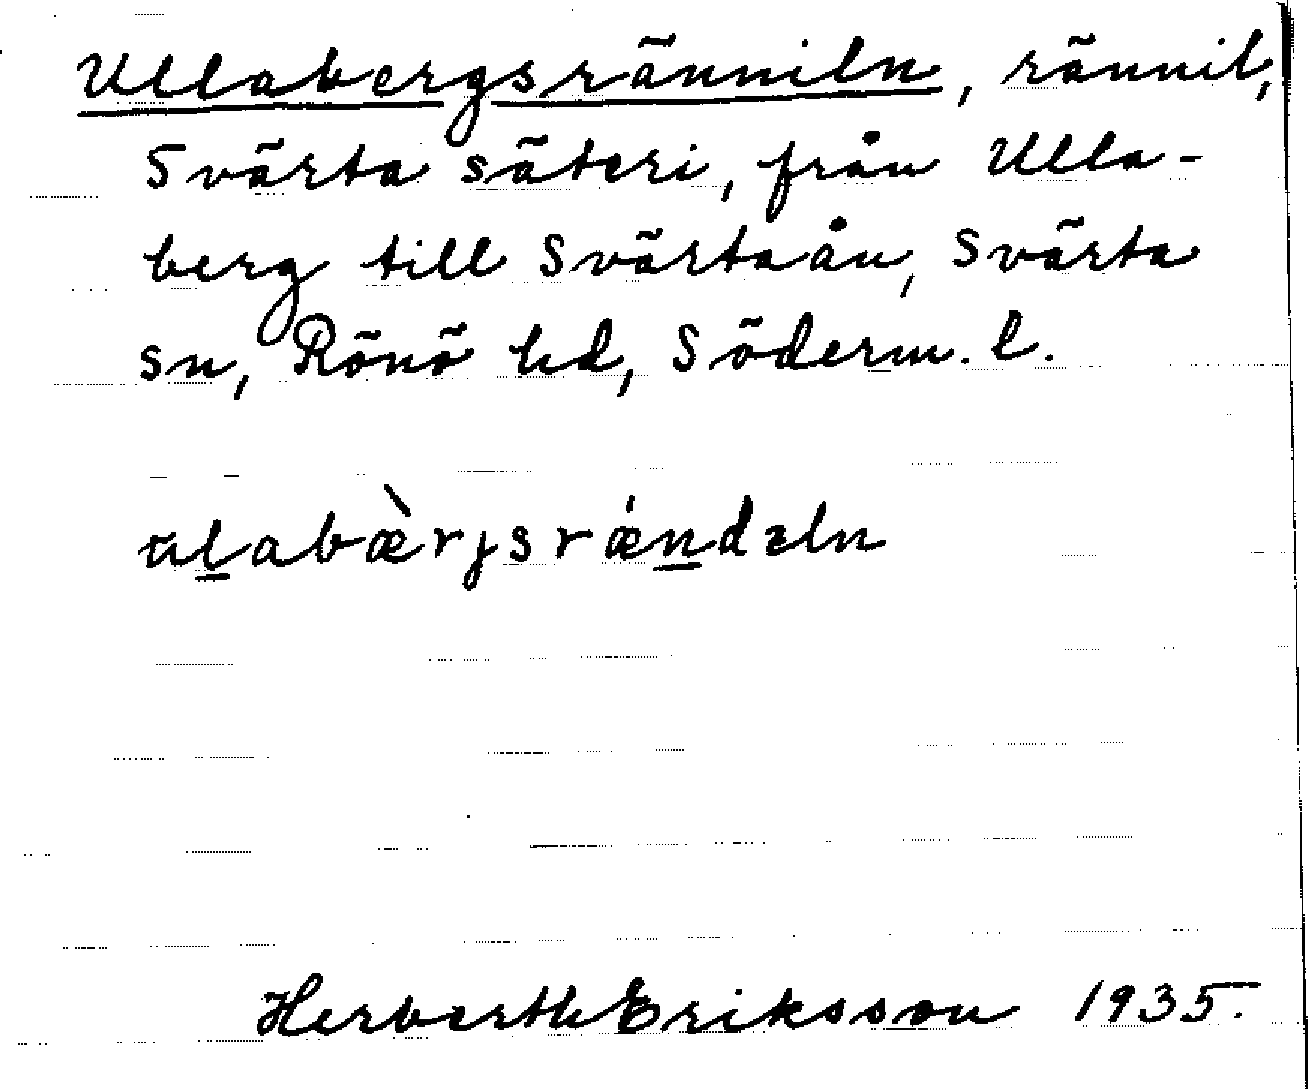 Ullabergsränniln, rännil,
Svärta säteri, från Ulla-
berg till Svärtaån, Svärta
sn, Rönö hd, Söderm. l.
ɯlabæ̀rjsrǽndəln
Herberth Eriksson 1935.